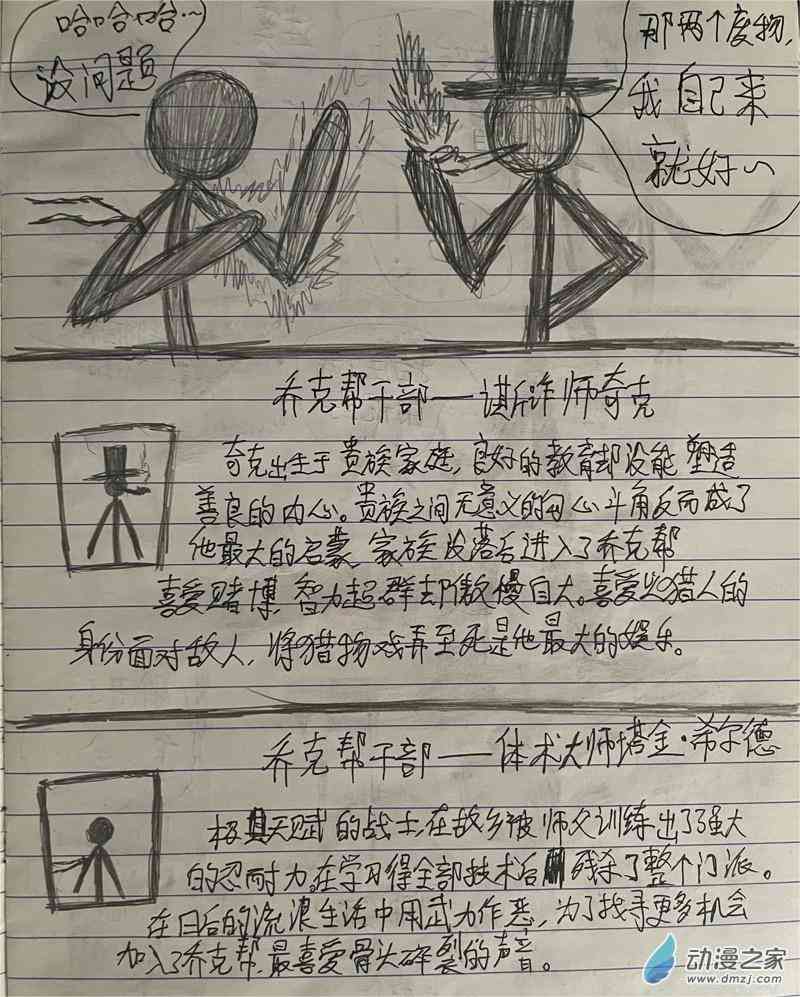 哈哈哈~
没问题
那两个废物,
我自己来
就好~
乔克帮干部——谋诈师奇克
奇克出生于贵族家庭,良好的教育却没能塑造
善良的内心。贵族之间无意义的勾心斗角反而成了
他最大的启蒙,家族没落后进入了乔克帮
喜爱赌博,智力超群却傲慢自大。喜爱以猎人的
身份面对敌人,将猎物戏弄至死是他最大的娱乐。
乔克帮干部——体术大师塔金·希尔德
极具天赋的战士,在故乡被师父训练出了强大
的忍耐力。在学习得全部技术后残杀了整个门派。
在日后的流浪生活中用武力作恶,为了找寻更多机会
加入了乔克帮,最喜爱骨头碎裂的声音。
动漫之家
www.dmzj.com